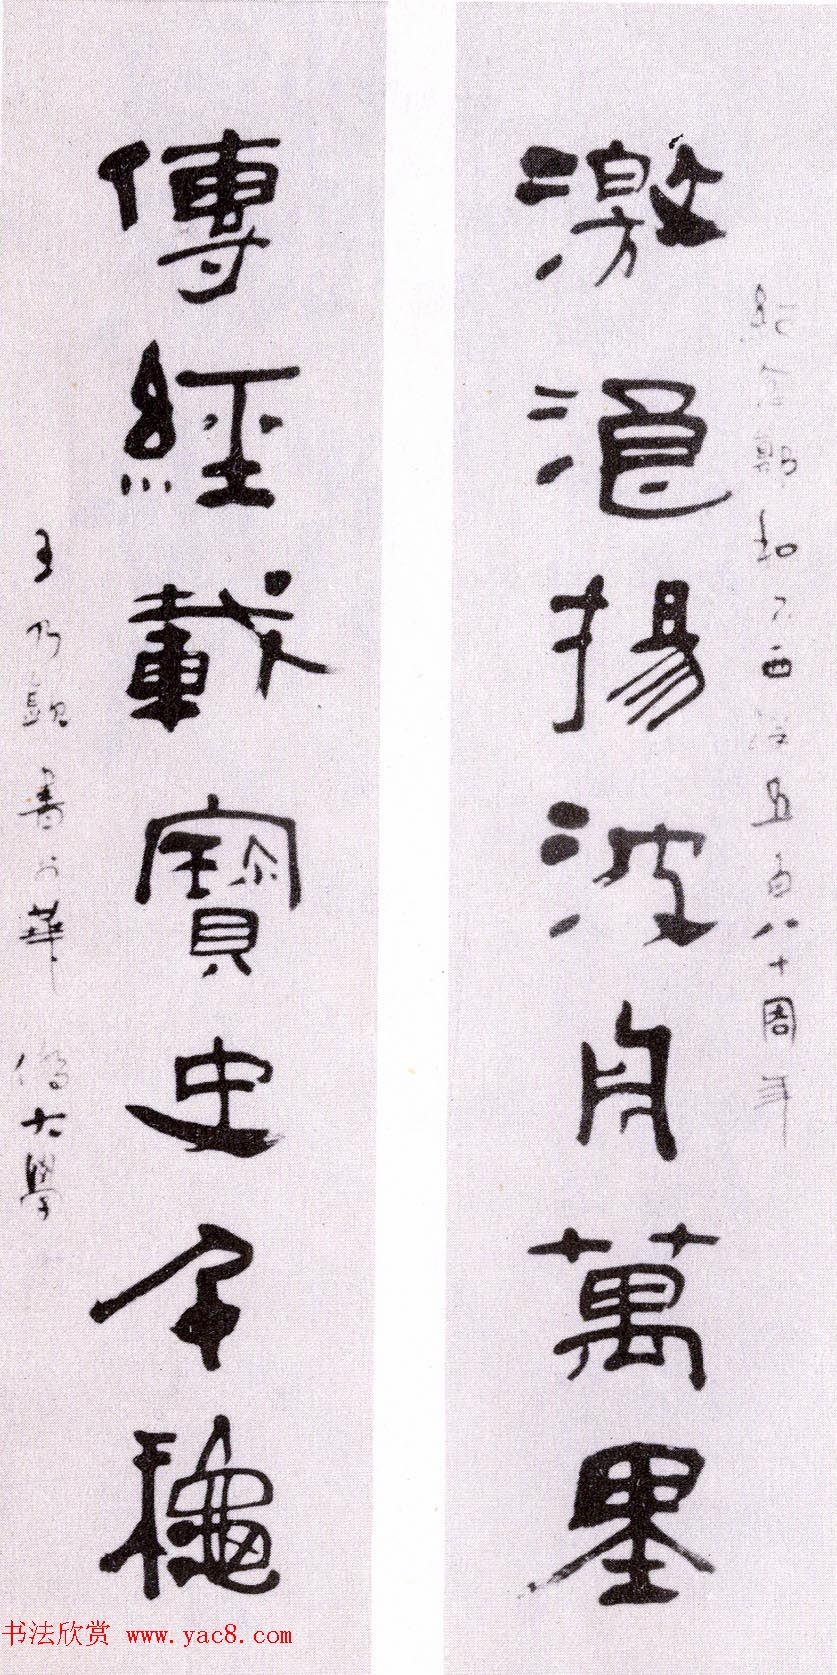 紀念鄭和下西洋五百八十周年
激浪揚波舟萬里
傳經載寶史千龝
王乃欽書於華僑大學
书法欣赏 www.yac8.com